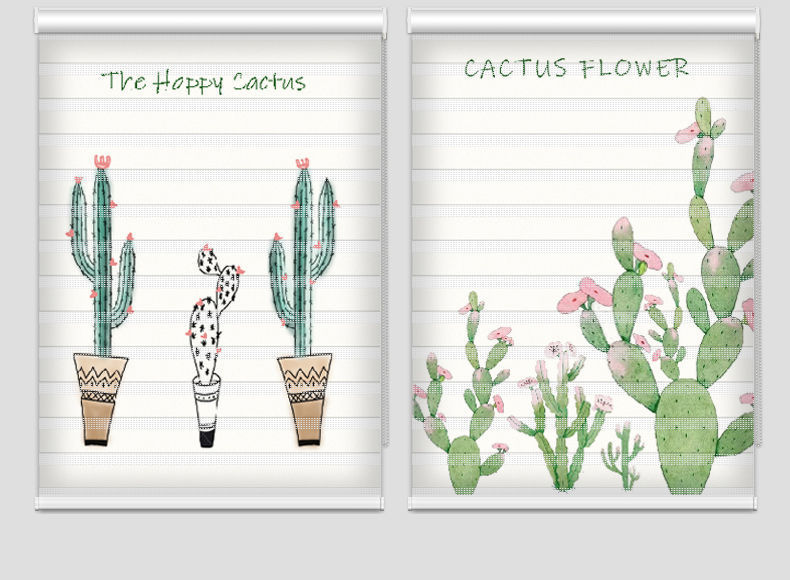 The Happy Cactus
CACTUS FLOWER